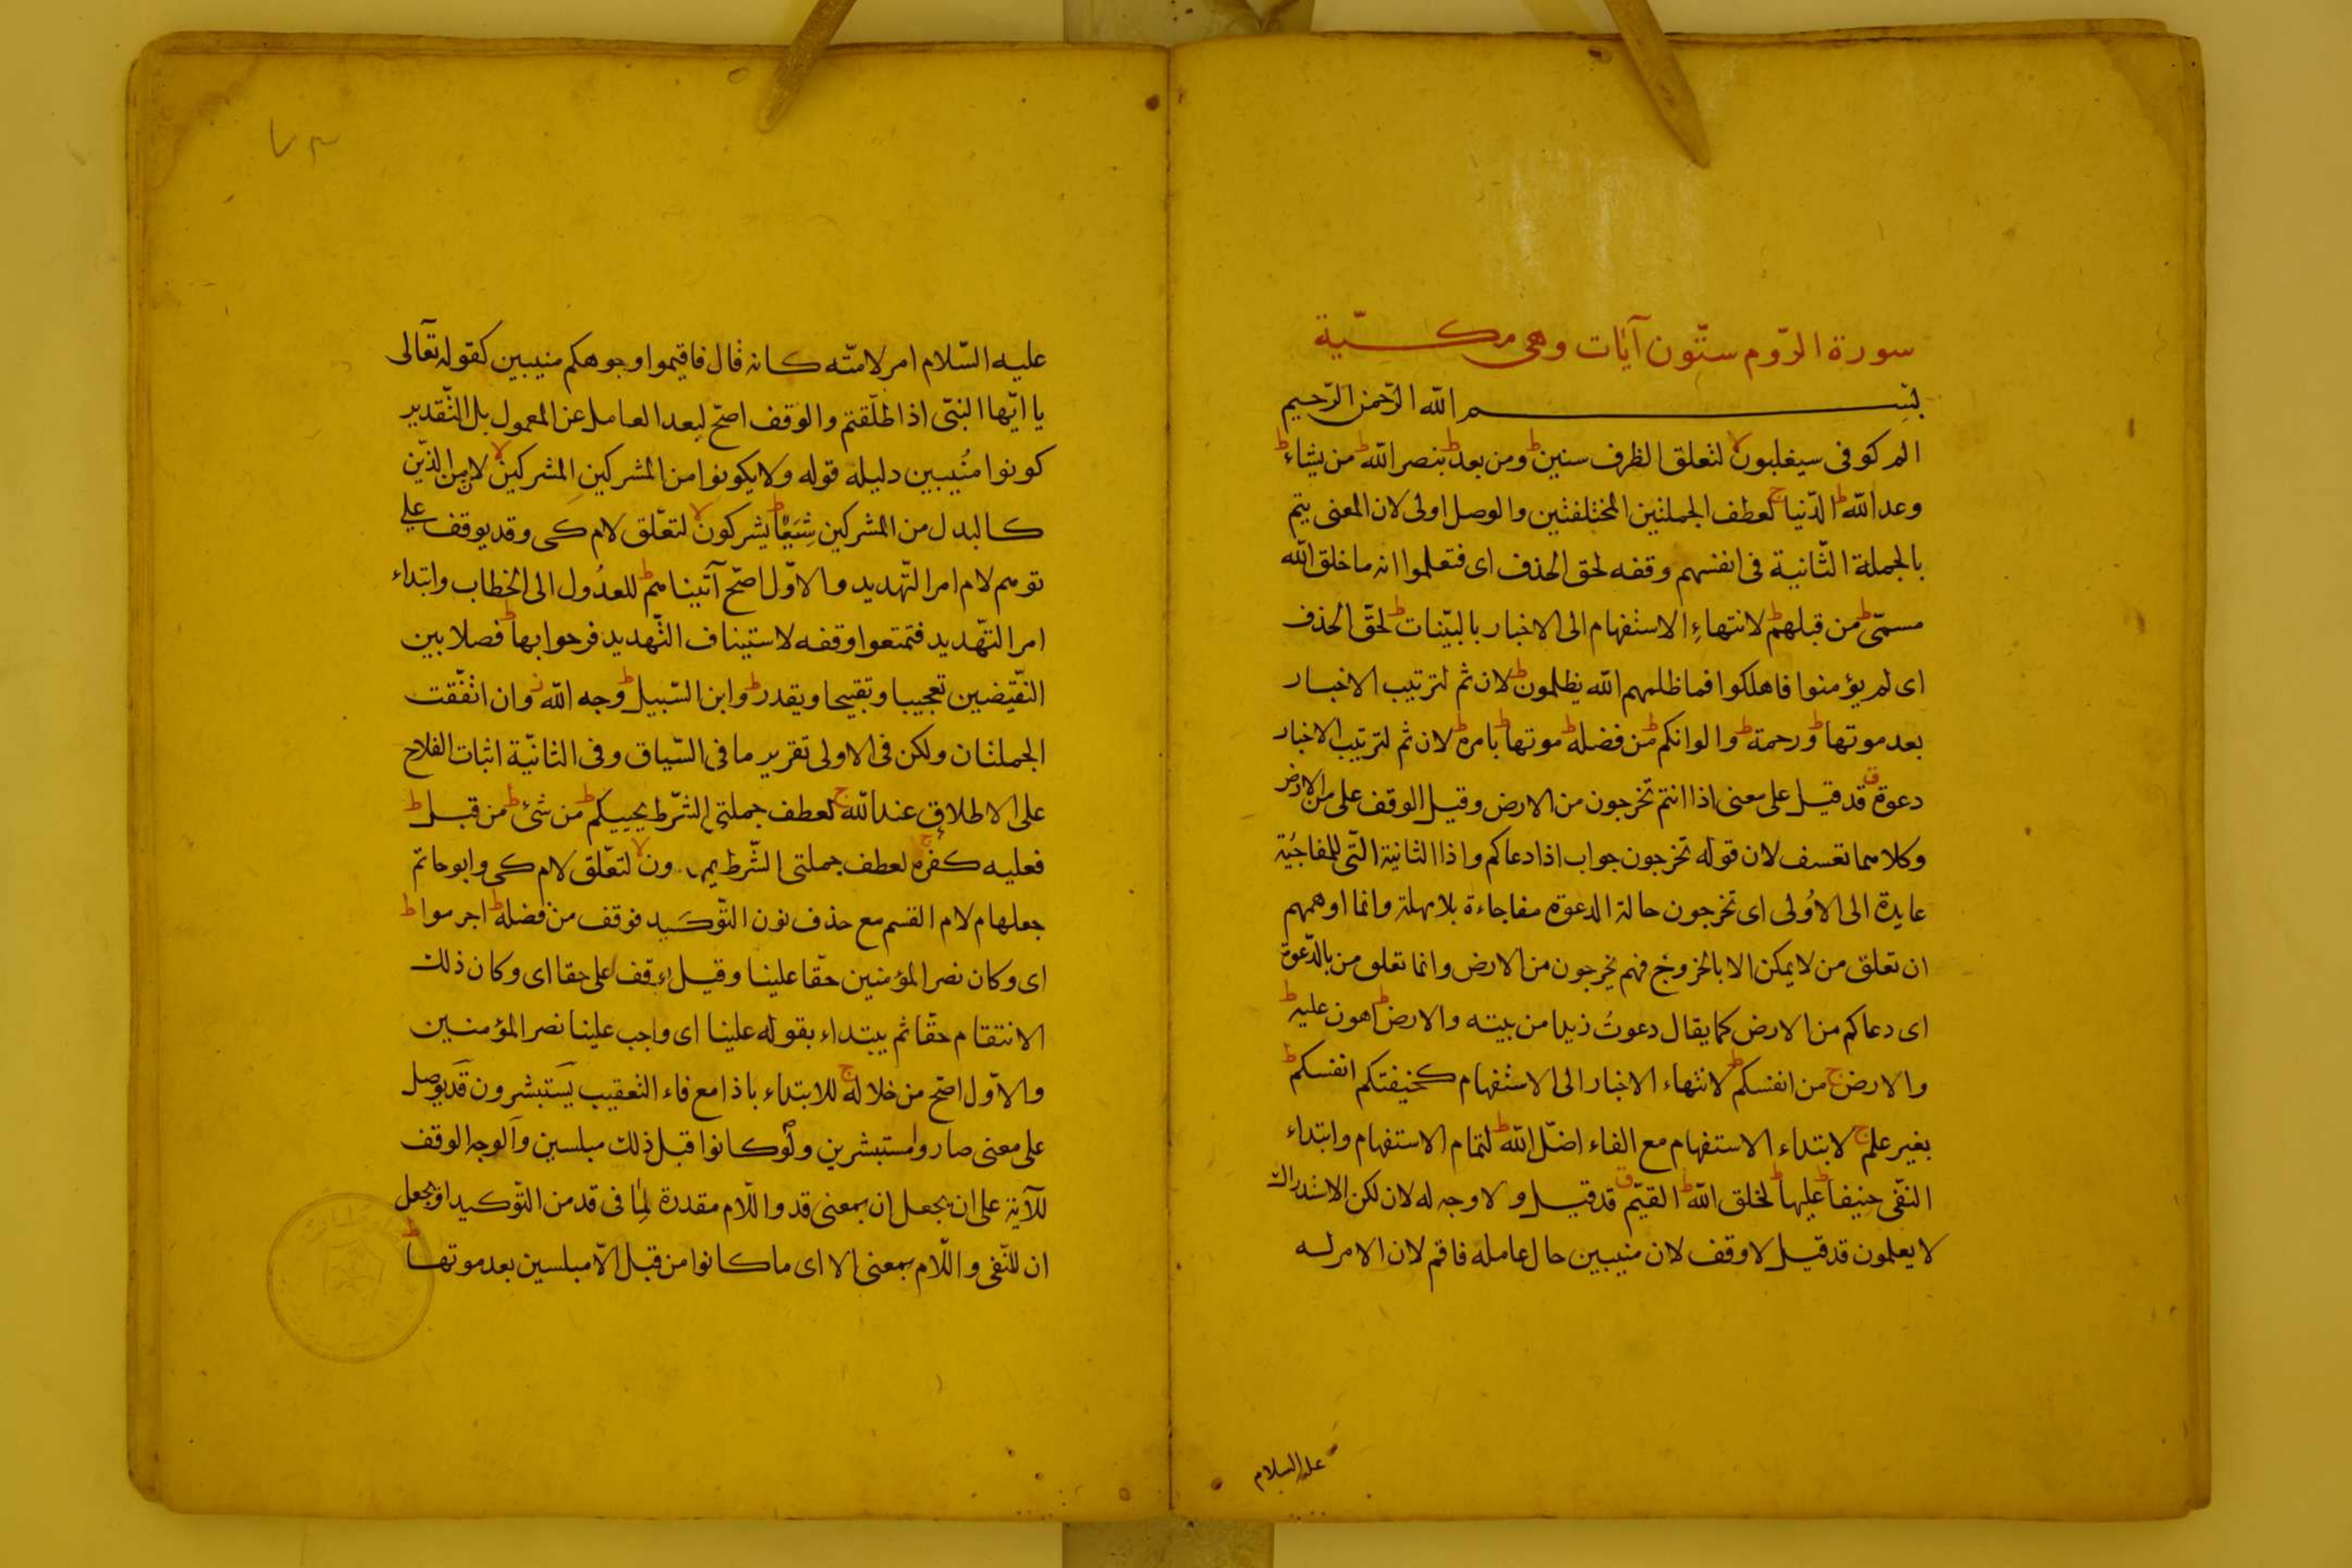 سورة الرّوم ستّون آيات وهى مكسيّة
بسم الله الرّحمن الرّحيم
الم كوفى سيغلبون لا لتعلق الظرف سنين ط ومن بعد ط بنصر الله ط من يشاء ط
وعد الله ط الدّنيا ج لعطف الجملتين المختلفتين والوصل اولى لان المعنى يتم
بالجملة الثّانية فى انفسهم وقفه لحق الحذف اى فتعلموا انه ما خلق الله
مسمّى ط من قبلهم ط لانتهاء الاستفهام الى الاخبار بالبيّنات ط لحقّ الحذف
اى لم يؤمنوا فاهلكوا فما ظلمهم الله يظلمون ط لان ثم لترتيب الاخبار
بعد موتها ط ورحمة ط والوانكم ط من فضله ط موتها ط بامره ط لان ثم لترتيب الاخبار
دعوة ق قد قيل على معنى اذا انتم تخرجون من الارض وقيل الوقف على من الارض
وكلاهما تعسف لان قوله تخرجون جواب اذا دعاكم واذا الثانية الّتى للمفاجئة
عايدة الى الاُولى اى تخرجون حالة الدعوة مفاجاءة بلا مهلة وانما اوهمهم
ان تعلق من لا يمكن الا بالخروج فهم يخرجون من الارض وانما تعلق من بالدّعوة
اى دعاكم من الارض كما يقال دعوتُ زيدا من بيته والارض ط اهون عليه ط
والارض ج من انفسكم ط لانتهاء الاخبار الى الاستفهام كخيفتكم انفسكم ط
بغير علم ج لابتداء الاستفهام مع الفاء اضلّ الله ط لتمام الاستفهام وابتداء
النفّى حنيفا ط عليها ط لخلق الله ط القيّم ق قد قيل ولا وجه له لان لكن الاستدراك
لا يعلمون قد قيل لا وقف لان منيبين حال عامله فاقم لان الامر له
عليه السلام
٧٣
عليه السّلام امر لامّته كانه قال فاقيموا وجوهكم منيبين كقوله تعالى
يا ايّها النبىّ اذا طلّقتم والوقف اصحّ لبعد العامل عن المعمول بل التّقدير
كونوا مُنيبين دليله قوله ولا يكونوا من المشركين المشركين لا لان من الّذين
كالبدل من المشركين شِيَعًا ط يشركون لا لتعلّق لام كى وقد يوقف على
توهم لام امر التّهديد والاوّل اصحّ آتينا هم ط للعدُول الى الخطاب وابتداء
امر التهّديد فتمتعوا وقفه لاستيناف التّهديد فرحوا بها ط فصلا بين
النقّيضين تعجيبا وتقيحا ويقدر ط وابن السّبيل ط وجه الله ز وان اتفّقت
الجملتان ولكن فى الاولى تقرير ما فى السّياق وفى الثانيّة اثبات الفلاح
على الاطلاق عند الله ج لعطف جملتى الشّرط يحييكم ط من شئ ط من قبل ط
فعليه كفره ج لعطف جملتى الشّرط ون لا لتعّلق لام كى وابو حاتم
جعلها م لام القسم مع حذف نون التّوكيد فوقف من فضله ط اجرموا ط
اى وكان نصر المؤمنين حقّا علينا وقيل يوقف على حقا اى وكان ذلك
الانتقام حقّا ثم يبتداء بقوله علينا اى واجب علينا نصر المؤمنين
والاوّل اصحّ من خلاله ج للابتداء باذا مع فاء التعقيب يَستبشرون قد يوصل
على معنى صاروا مستبشرين ولو كانوا قبل ذلك مبلسين والوجه الوقف
للآية على ان يجعل ان بمعنى قد والّلام مقدرة لما فى قد من التّوكيد او يجعل
ان للنّفى والّلام بمعنى الا اى ما كانوا من قبل الاّ مبلسين بعد موتها ط